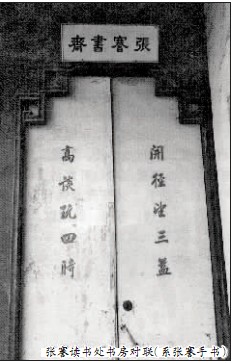 張謇書齋
開徑望三益
高談玩四時
张謇读书处书房对联(系张謇手书)